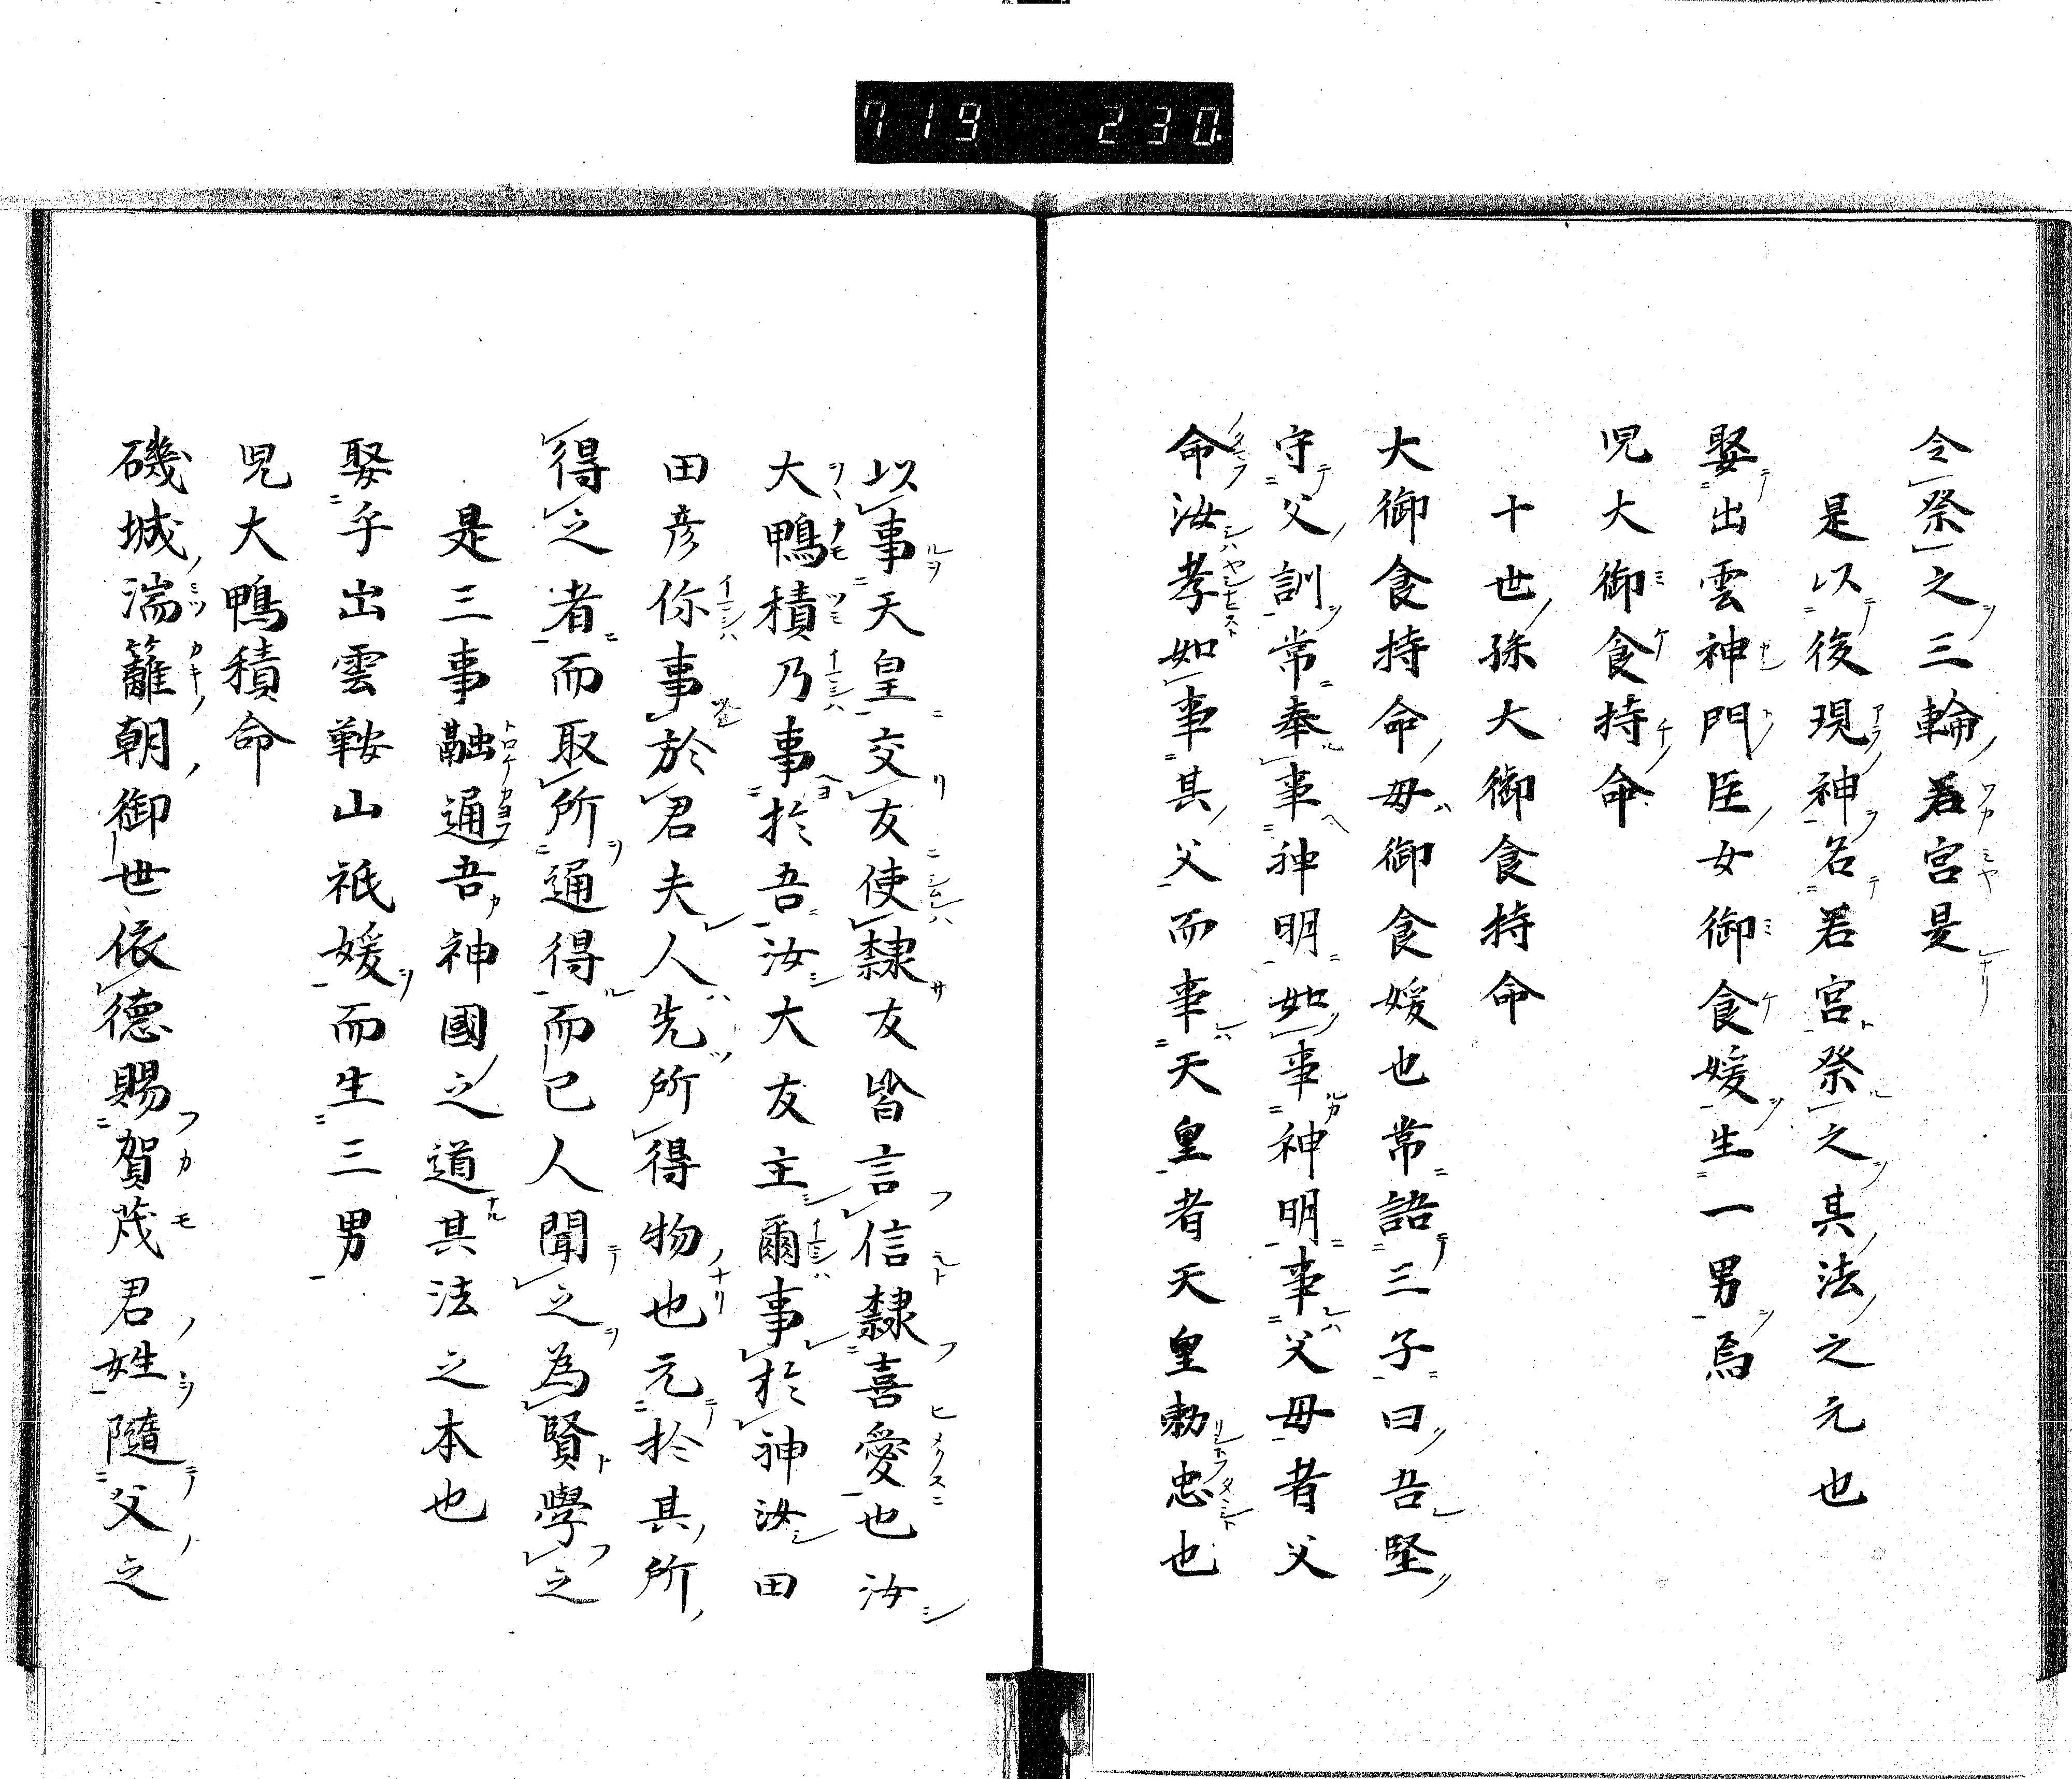 719 230.
令祭之三輪若宮是
是以後現神名若宮祭之其法之元也
娶出雲神門臣女御食媛生一男焉
児大御食持命
十世孫大御食持命
大御食持命母御食媛也常語三子曰吾堅
守父訓常奉事神明如事神明事父母者父
命汝孝如事其父而事天皇者天皇勅忠也
以事天皇交友使隷友皆言信隷喜愛也汝
大鴨積乃事於吾汝大友主爾事於神汝田
田彦你事於君夫人先所得物也元於其所
得之者而取所通得而已人聞之為賢學之
是三事融通吾神國之道其法之本也
娶乎出雲鞍山祇媛而生三男
児大鴨積命
磯城湍籬朝御世依德賜賀茂君姓隨父之